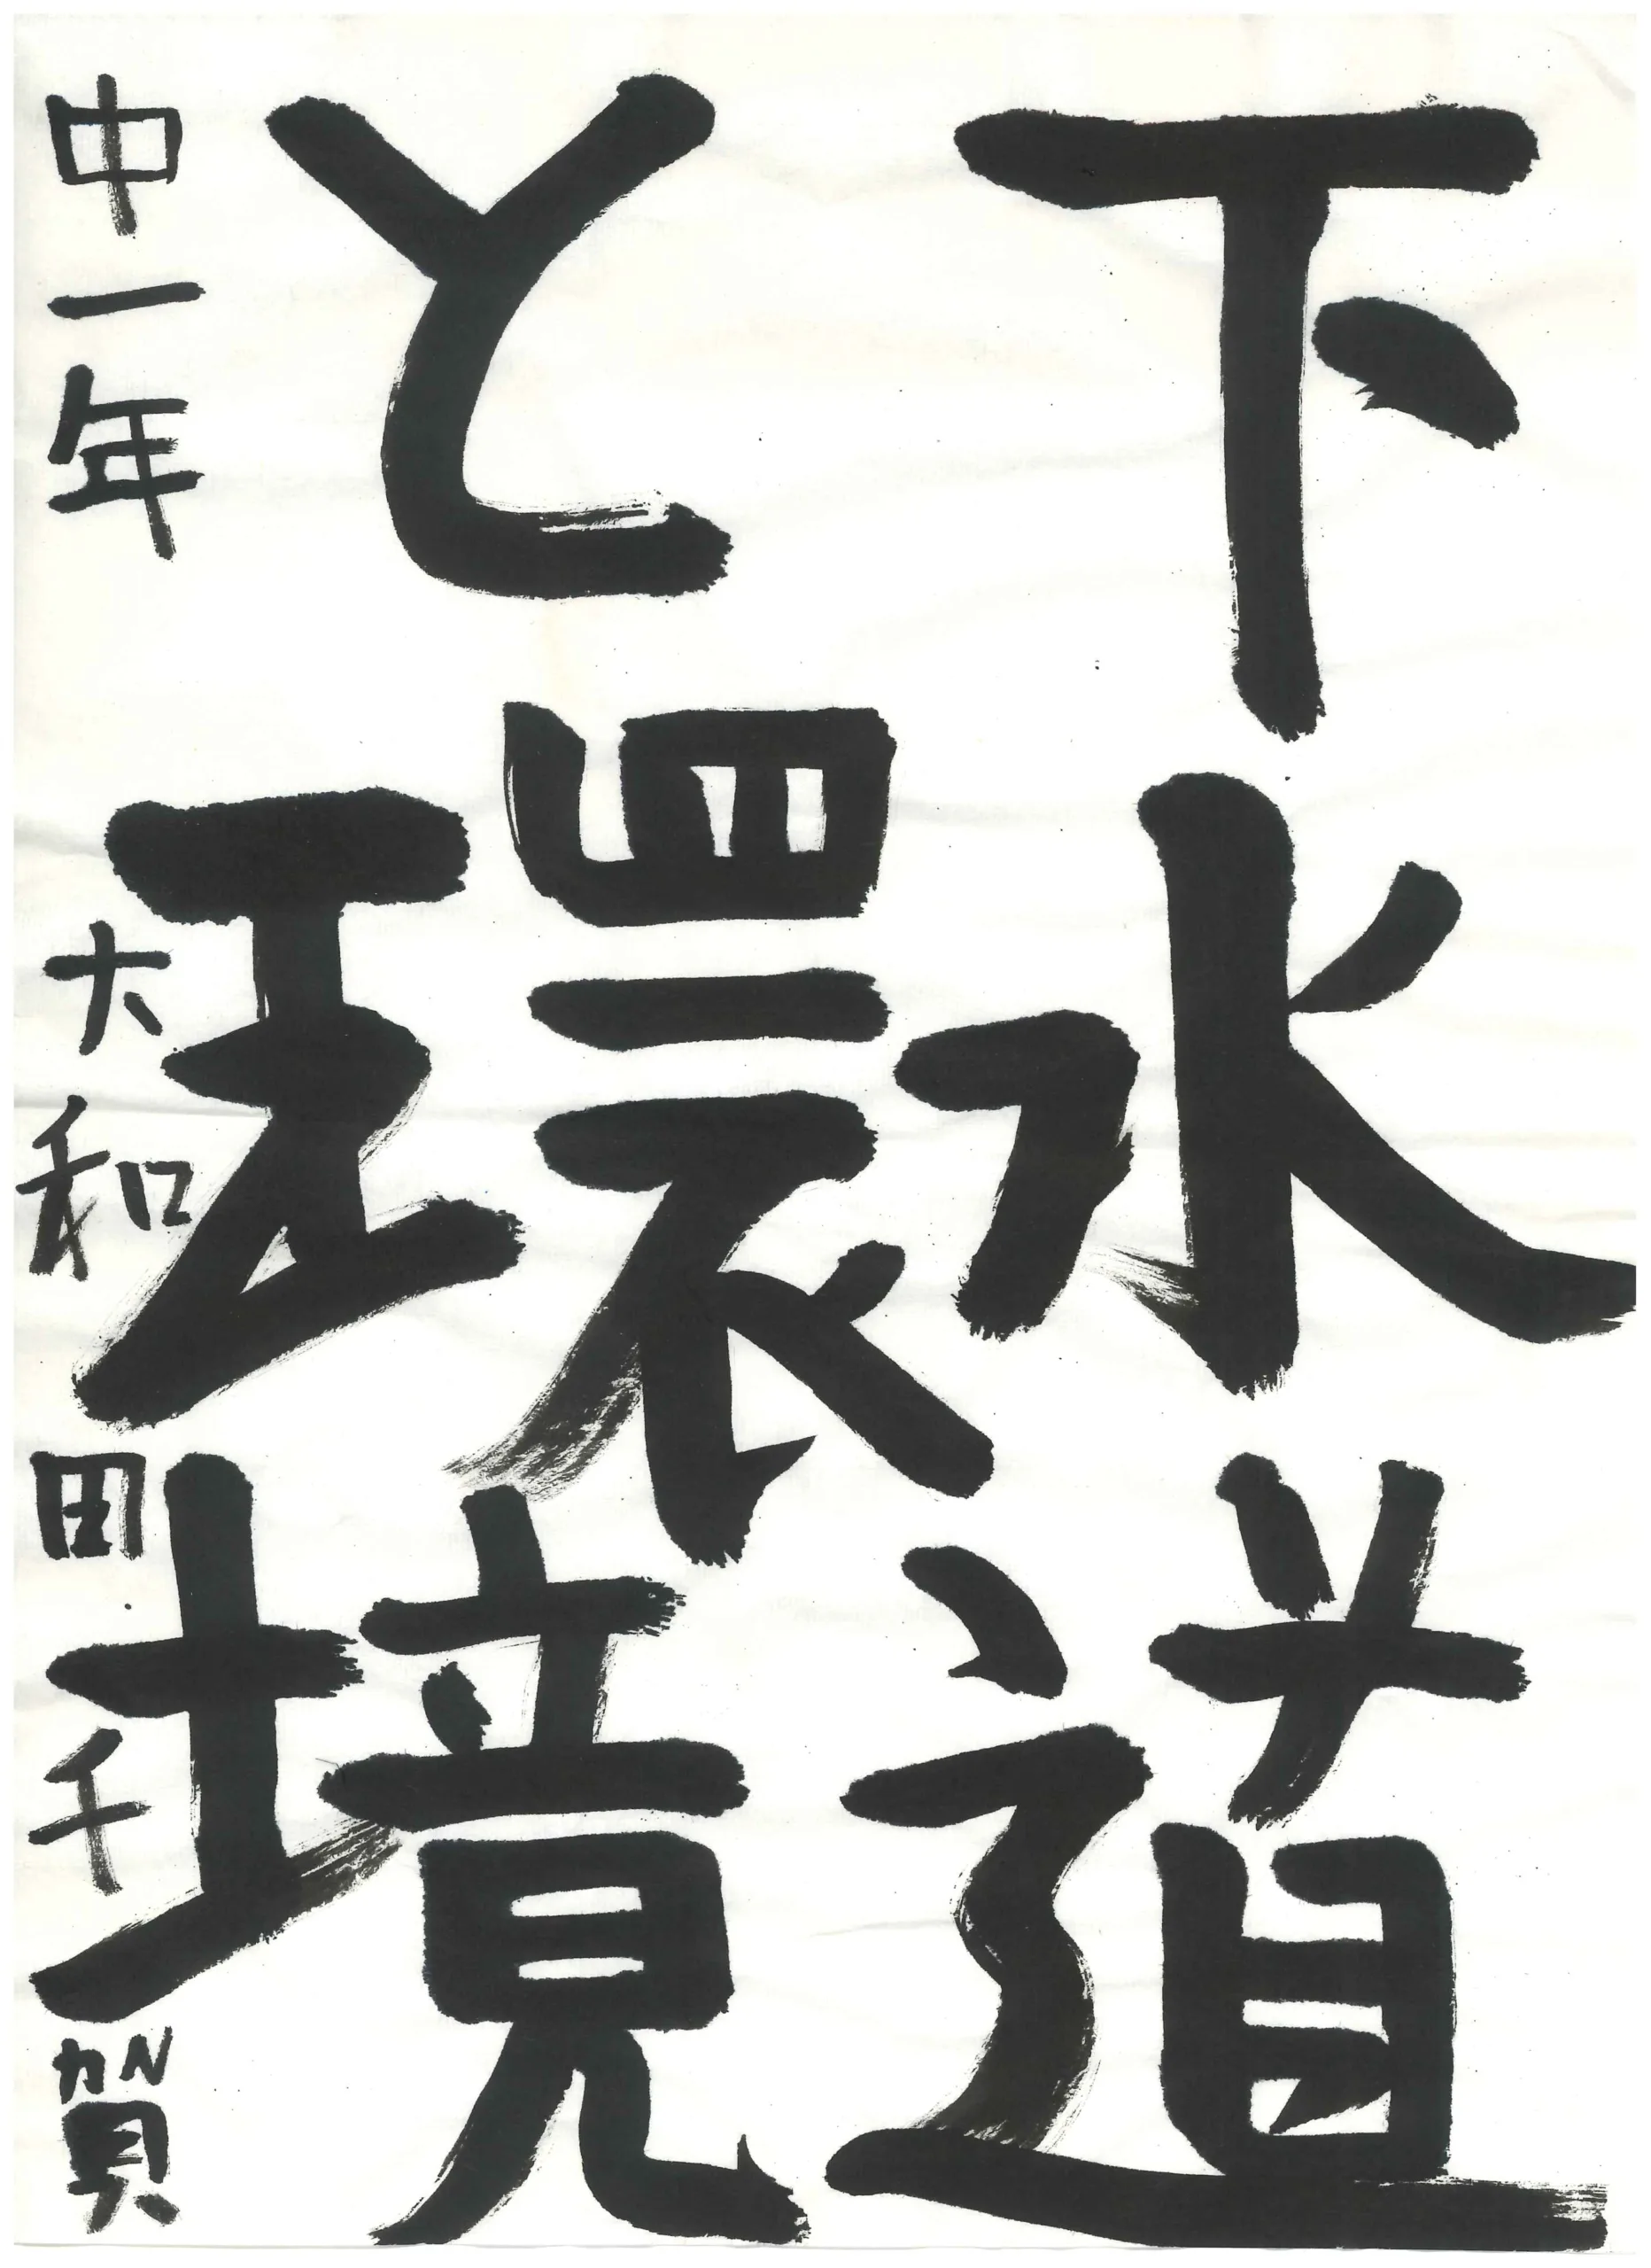 下水道
と環境
中一年 大和田千賀